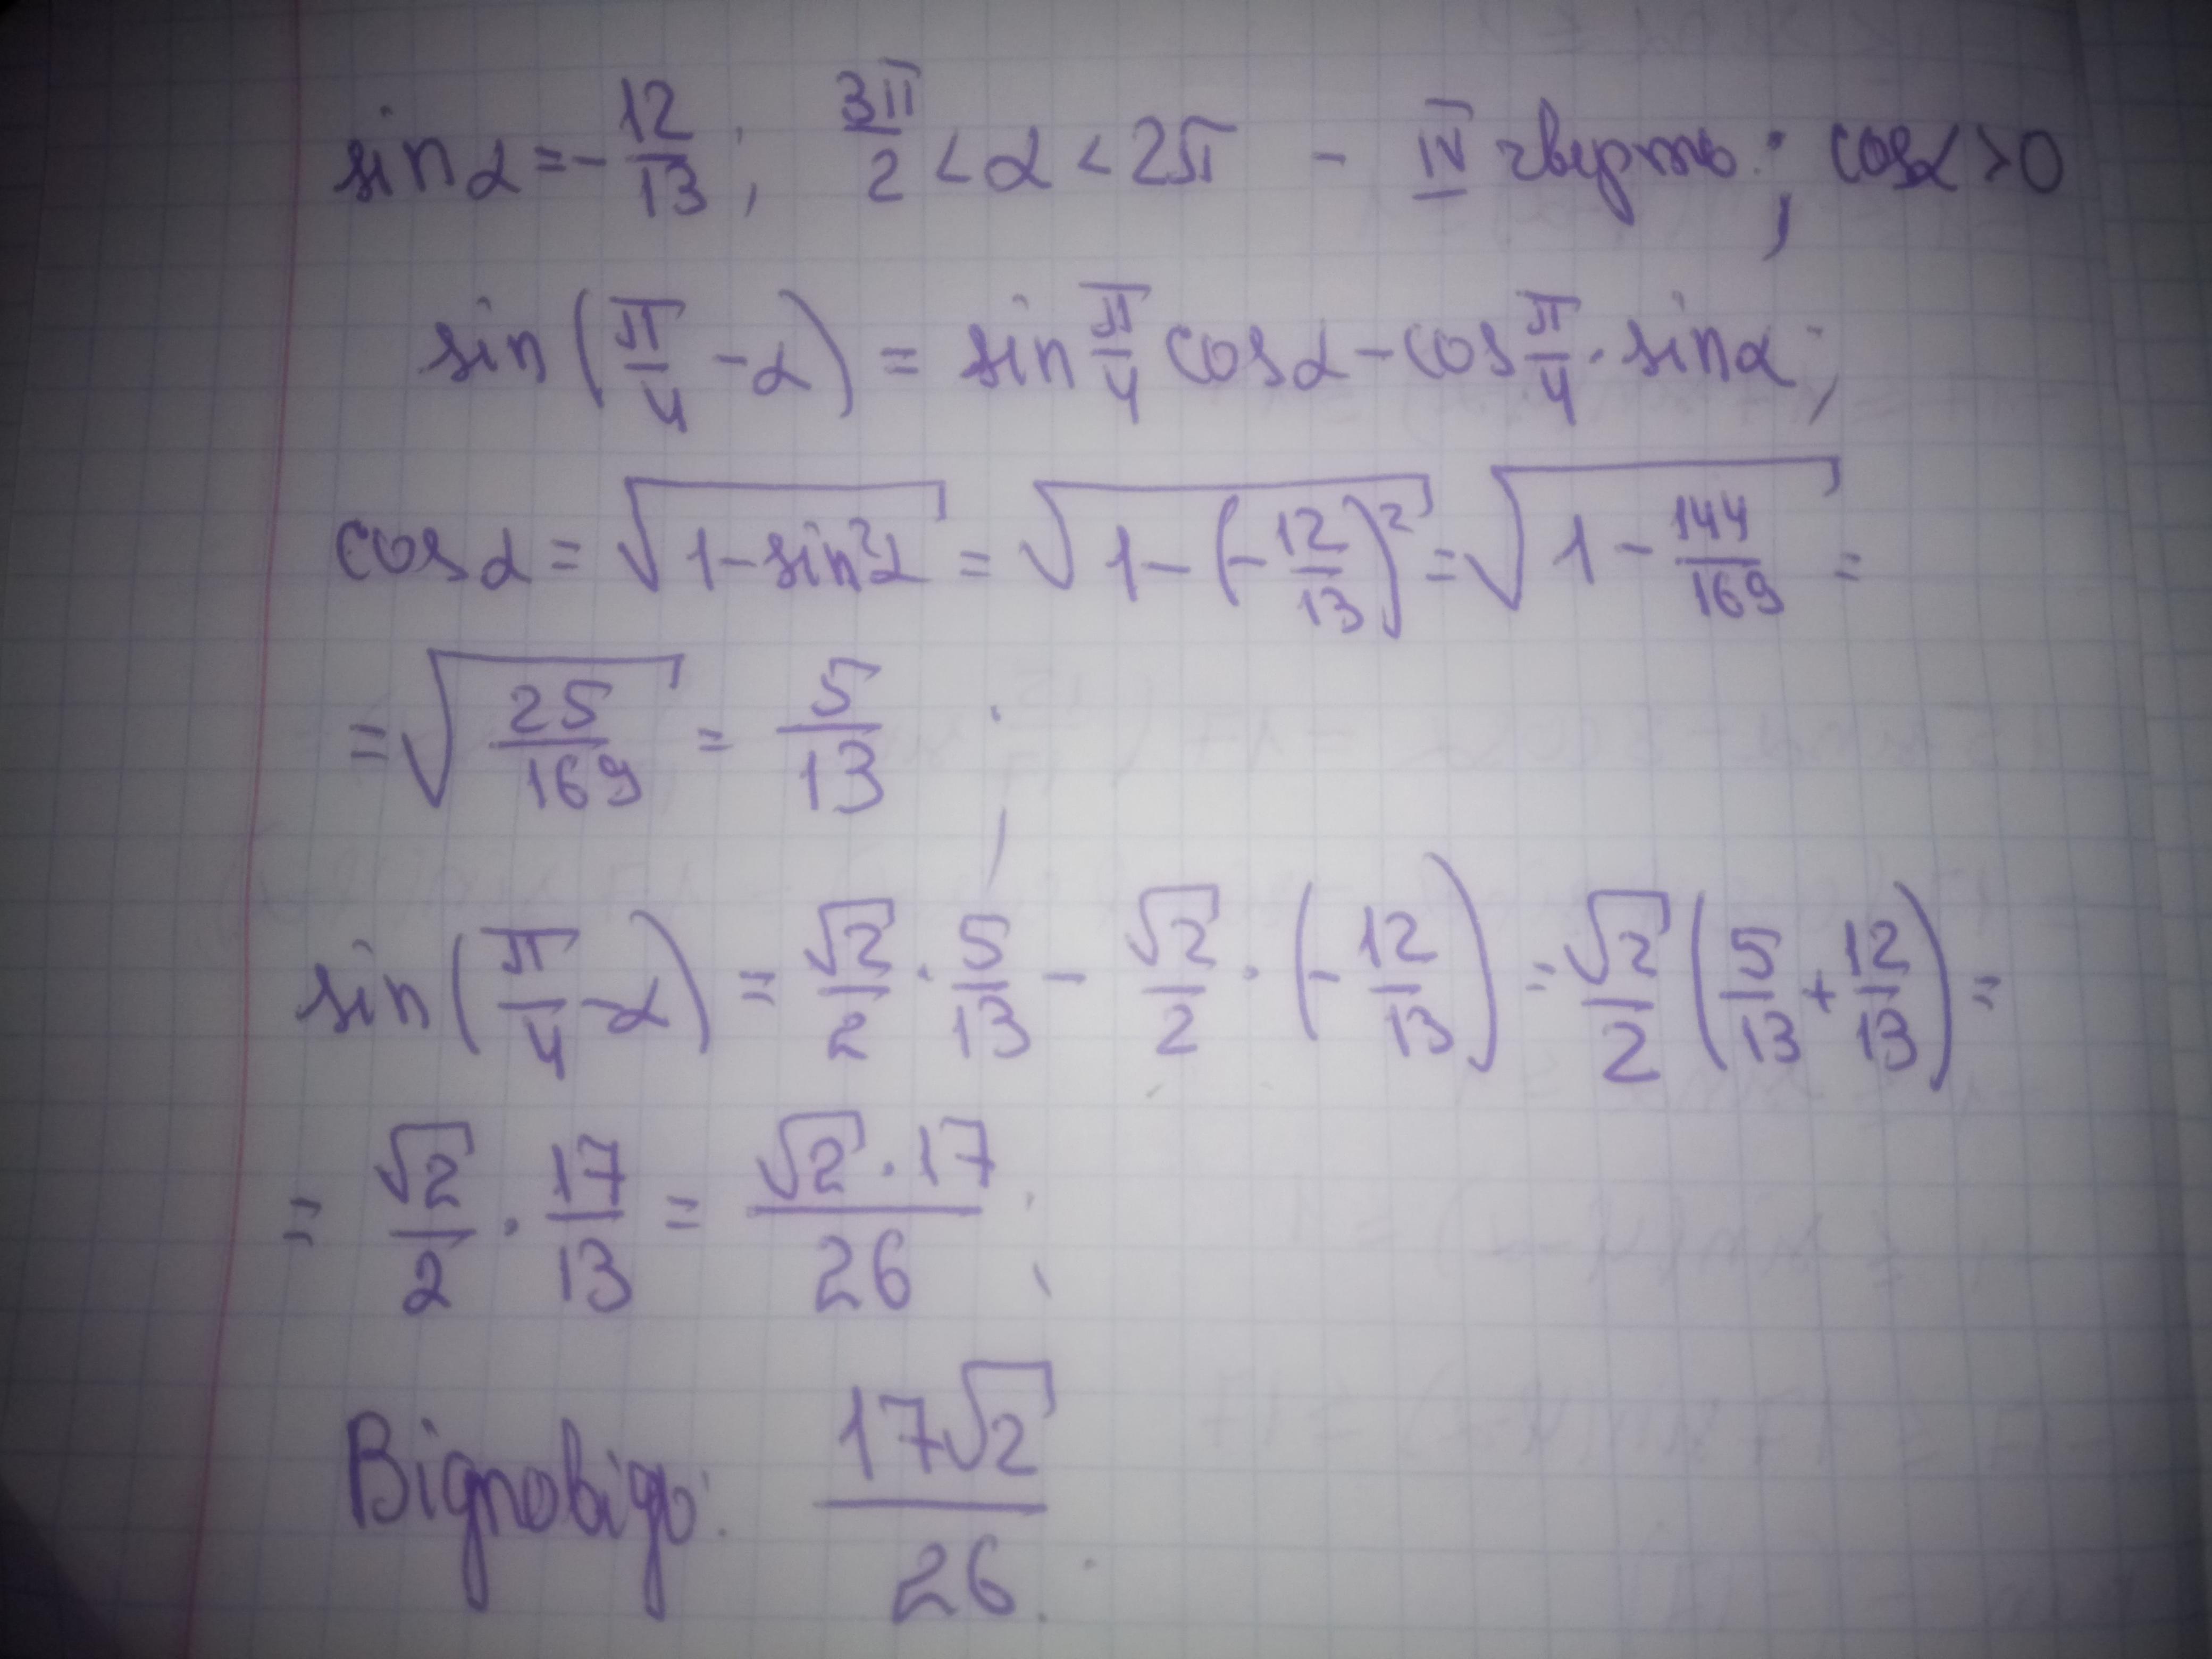 sin α = - 12/13; 3π/2 < α < 2π - IV чверть; cos α > 0
sin (π/4 - α) = sin π/4 cos α - cos π/4 · sin α;
cos α = √(1 - sin²α) = √(1 - (-12/13)²) = √(1 - 144/169) =
= √(25/169) = 5/13;
sin (π/4 - α) = √2/2 · 5/13 - √2/2 · (-12/13) = √2/2 (5/13 + 12/13) =
= √2/2 · 17/13 = √2 · 17/26;
Відповідь: 17√2/26.